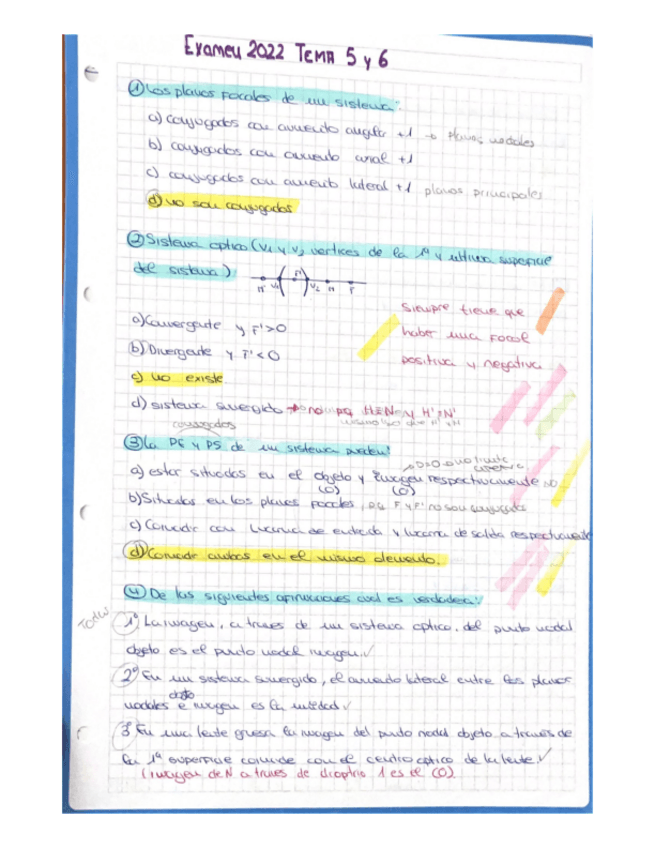 Examen 2022 TEMA 5 y 6
① Los planos focales de un sistema:
a) conjugados con aumento angular +1 → planos nodales
b) conjugados con aumento axial +1
c) conjugados con aumento lateral +1 planos principales
d) no son conjugados
② Sistema optico (V1 y V2 vertices de la 1ª y ultima superficie
del sistema)
V1 V2 H F
a) Convergente y F'>0
b) Divergente y F'<0
c) no existe
d) sistema sumergido → no pq H≡N y H'≡N'
Siempre tiene que
haber una focal
positiva y negativa
conjugados
③ La PE y PS de un sistema pueden:
a) estar situadas en el objeto y imagen respectivamente NO
(O) (O')
b) Situadas en los planos focales, pq F y F' no son conjugados
c) Coincidir con lucarna de entrada y lucarna de salida respectivamente
d) Coincidir ambas en el mismo elemento.
④ De las siguientes afirmaciones cual es verdadera:
TODAS
1º La imagen, a traves de un sistema optico, del punto nodal
objeto es el punto nodal imagen.✓
2º En un sistema sumergido, el aumento lateral entre los planos
nodales objeto e imagen es la unidad ✓
3º En una lente gruesa la imagen del punto nodal objeto a traves de
la 1ª superficie coincide con el centro optico de la lente.✓
(imagen de N a traves de dioptrio 1 es el (O)